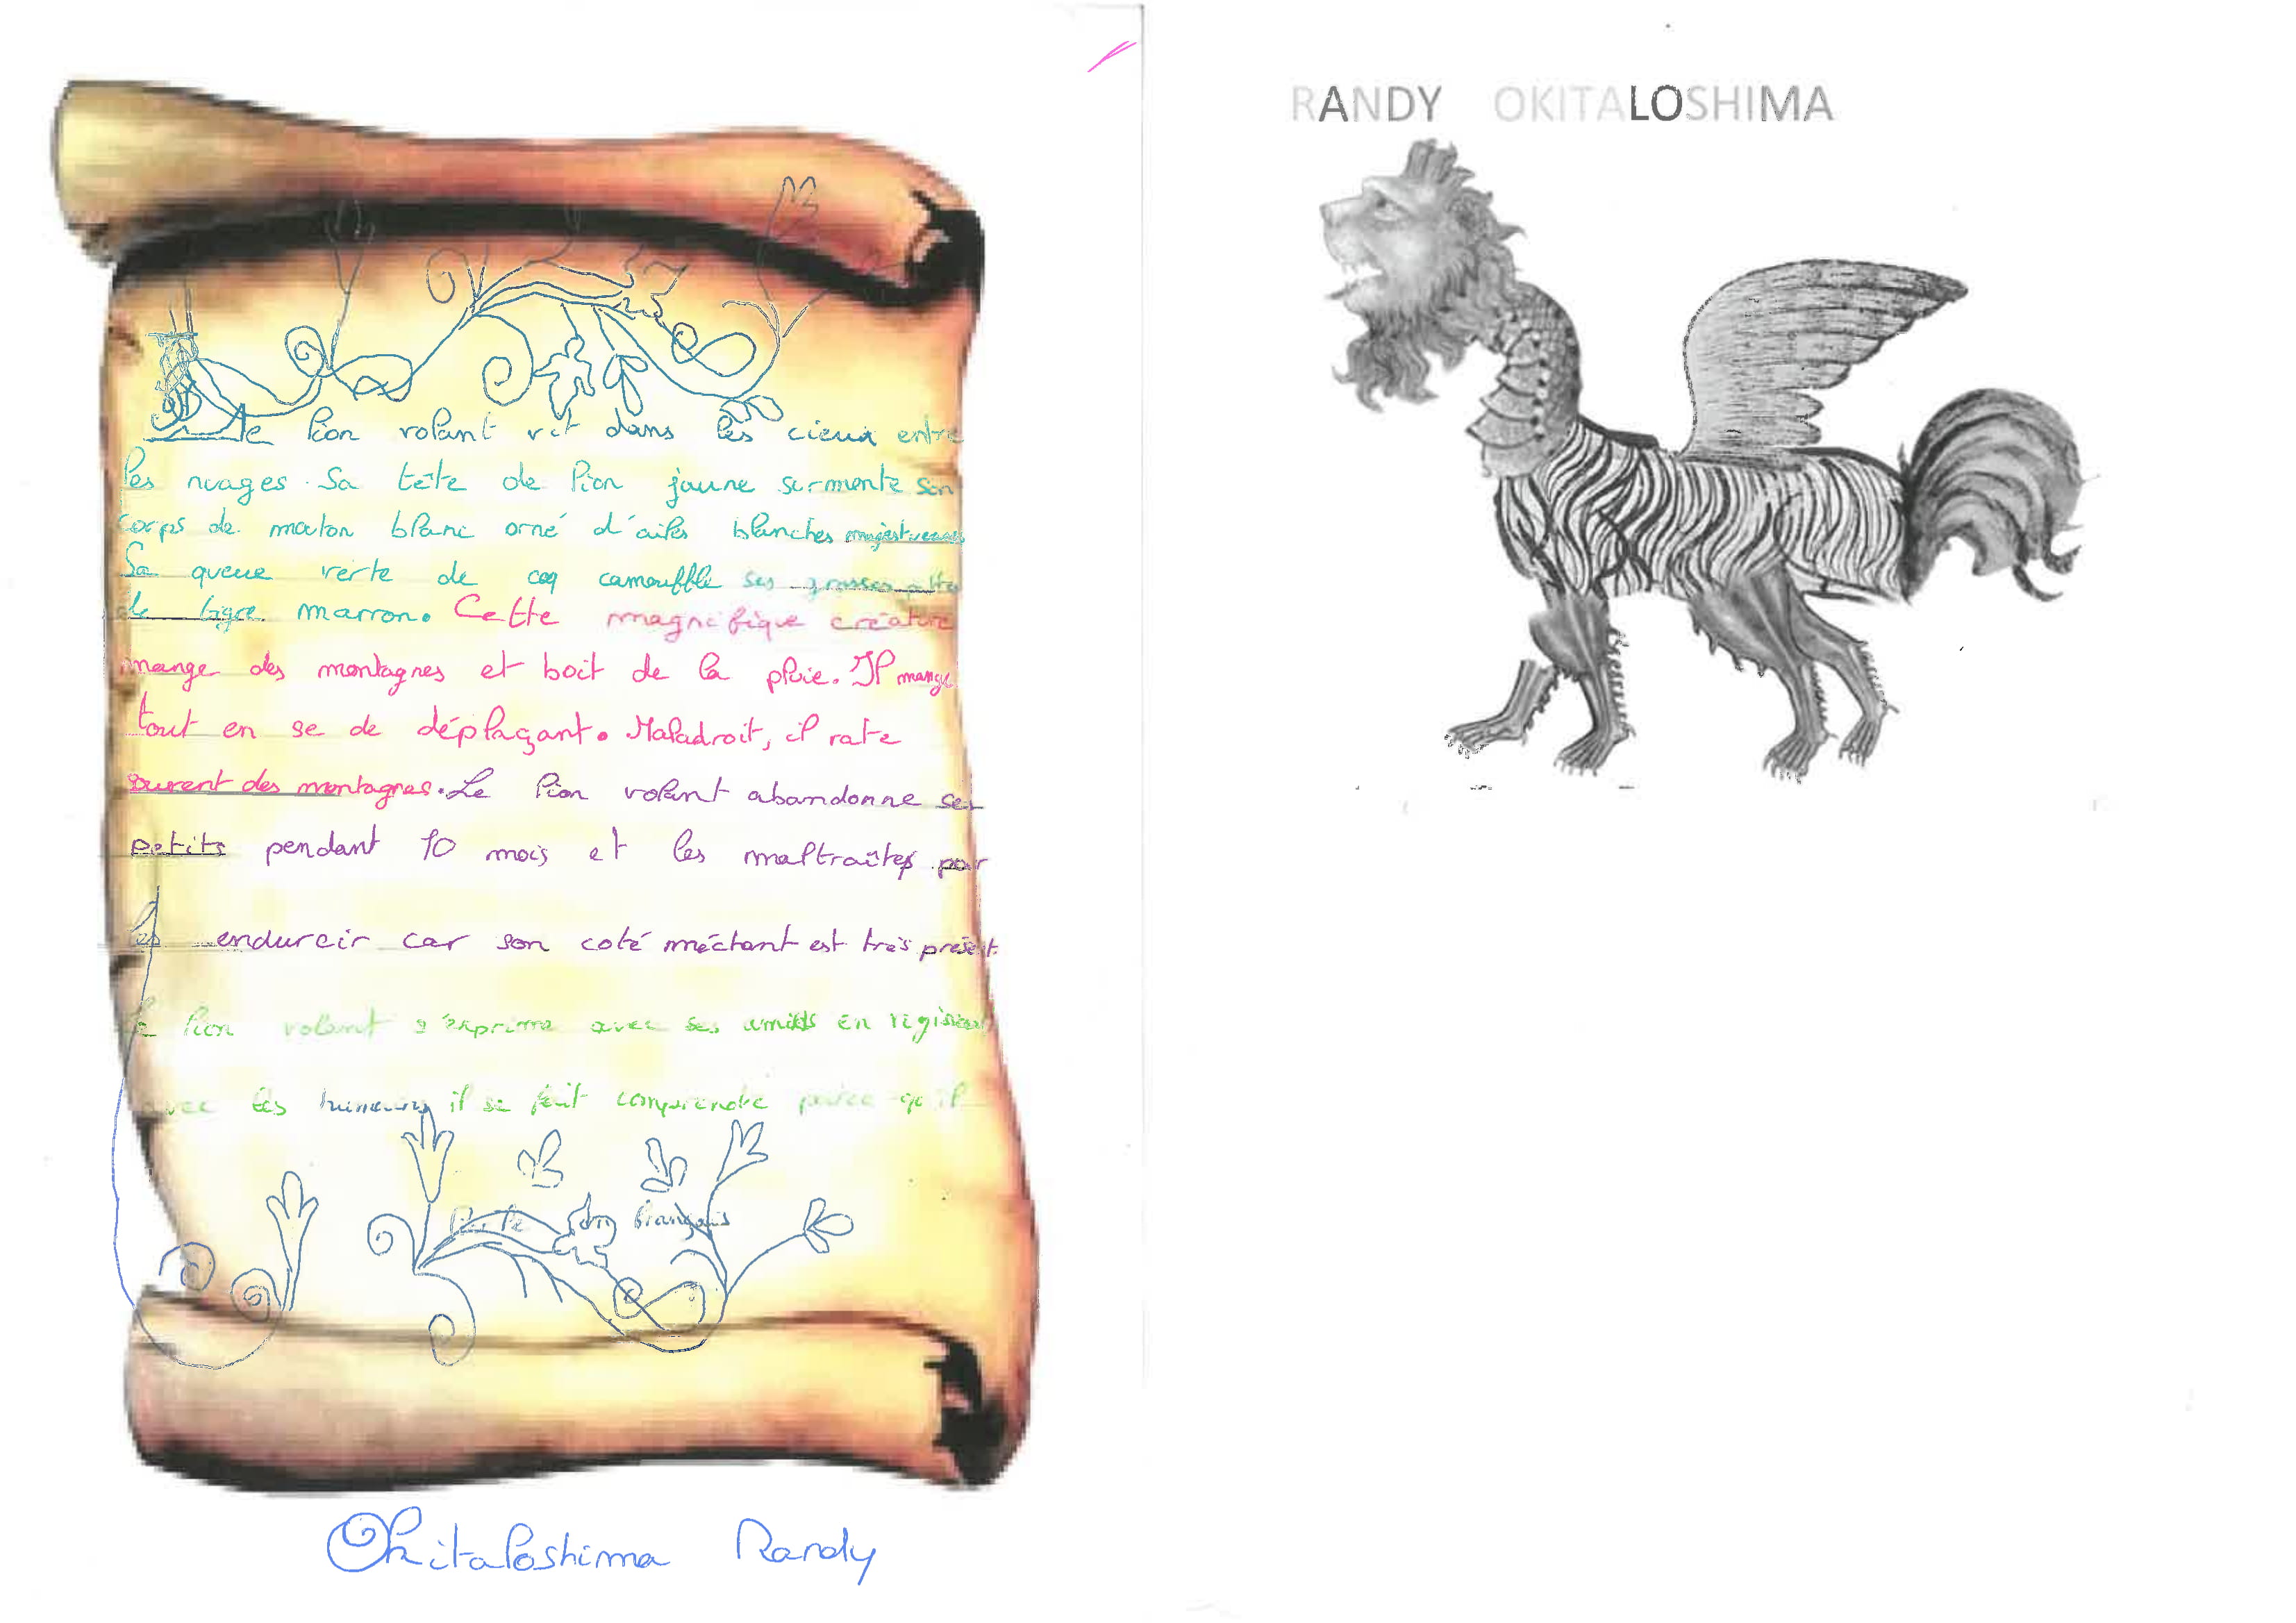 Le lion volant vit dans les cieux entre
les nuages. Sa tête de lion jaune surmonte son
corps de mouton blanc orné d'ailes blanches majestueuses
Sa queue verte de coq camouffle ses grosses pattes
de tigre marron. Cette magnifique créature
mange des montagnes et boit de la pluie. Il mange
tout en se de déplaçant. Maladroit, il rate
souvent des montagnes. Le lion volant abandonne ses
petits pendant 10 mois et les maltraîtes pour
les endurcir car son coté méchant est très présent.
Le lion volant s'exprime avec ses amis en rugissant
avec les humains il se fait comprendre parce qu'il
parle en français
Okitaloshima Randy
RANDY OKITALOSHIMA